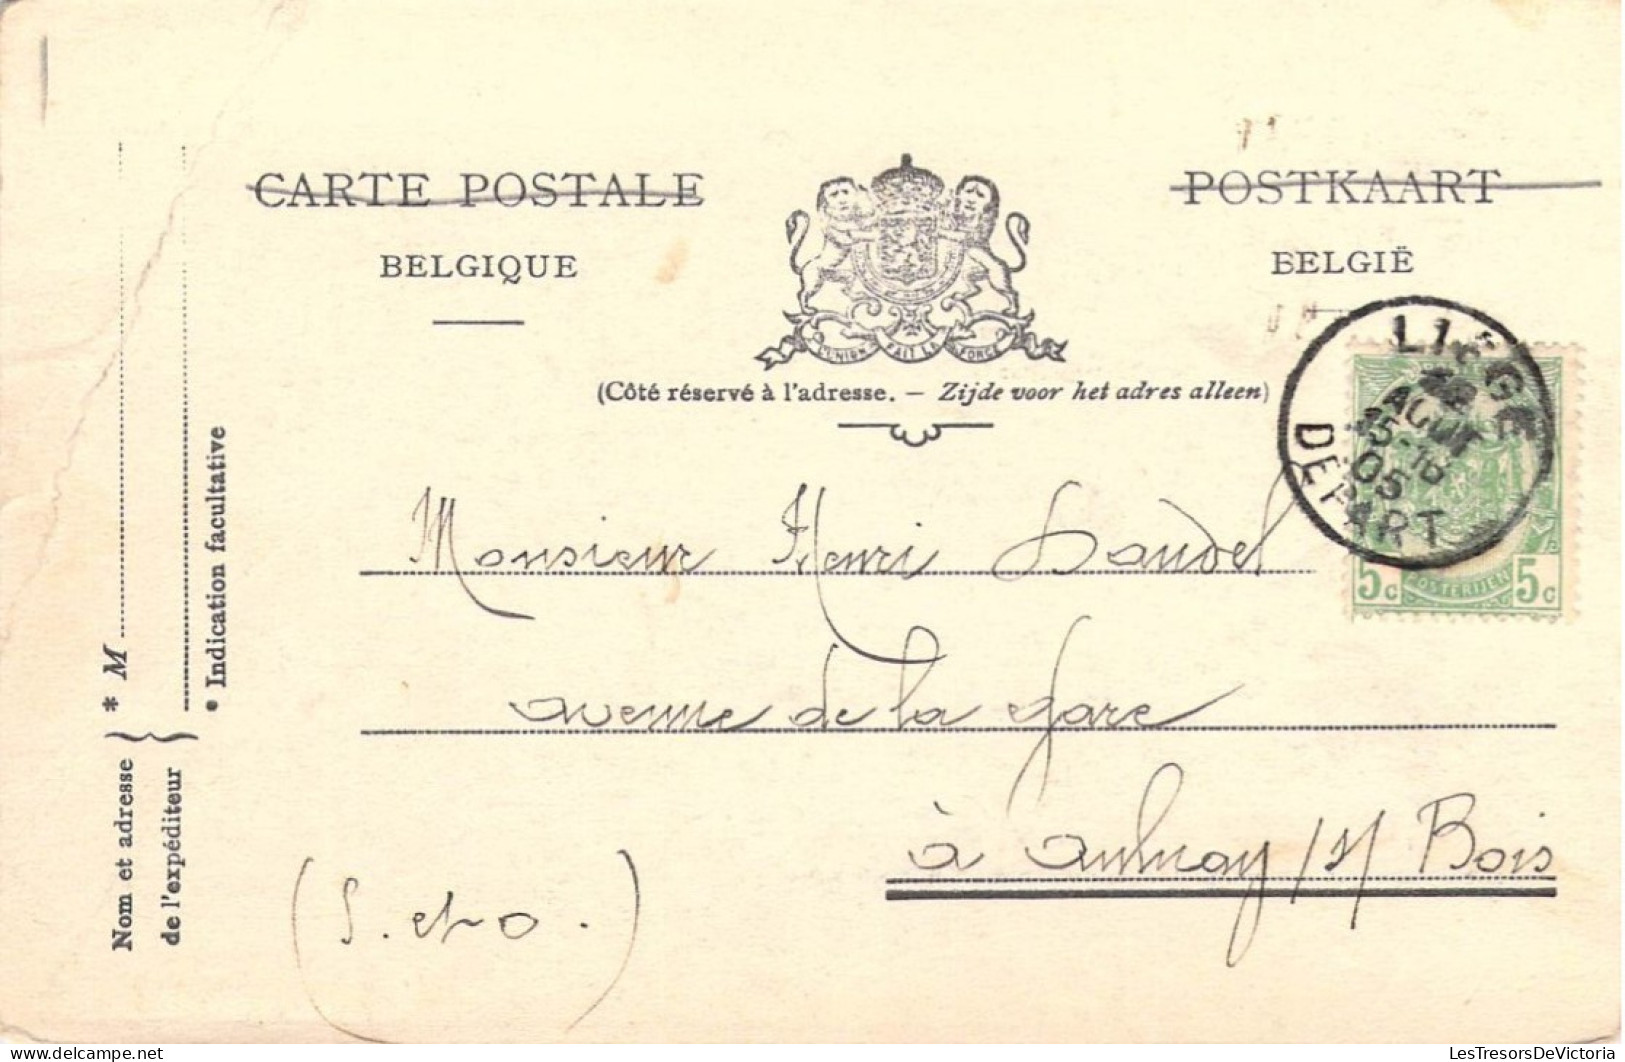 CARTE POSTALE
POSTKAART
BELGIQUE
BELGIË
L'UNION FAIT LA FORCE
(Côté réservé à l'adresse. — Zijde voor het adres alleen)
LIÉGE
AOUT
15-16
05
DEPART
5c POSTERIJEN 5c
Monsieur Henri
avenue de la Gare
à Aulnay /s/ Bois
(S. et O.)
Nom et adresse
de l'expéditeur
* M
* Indication facultative
Belgique - Carte postale - LesTresorsDeVictoria